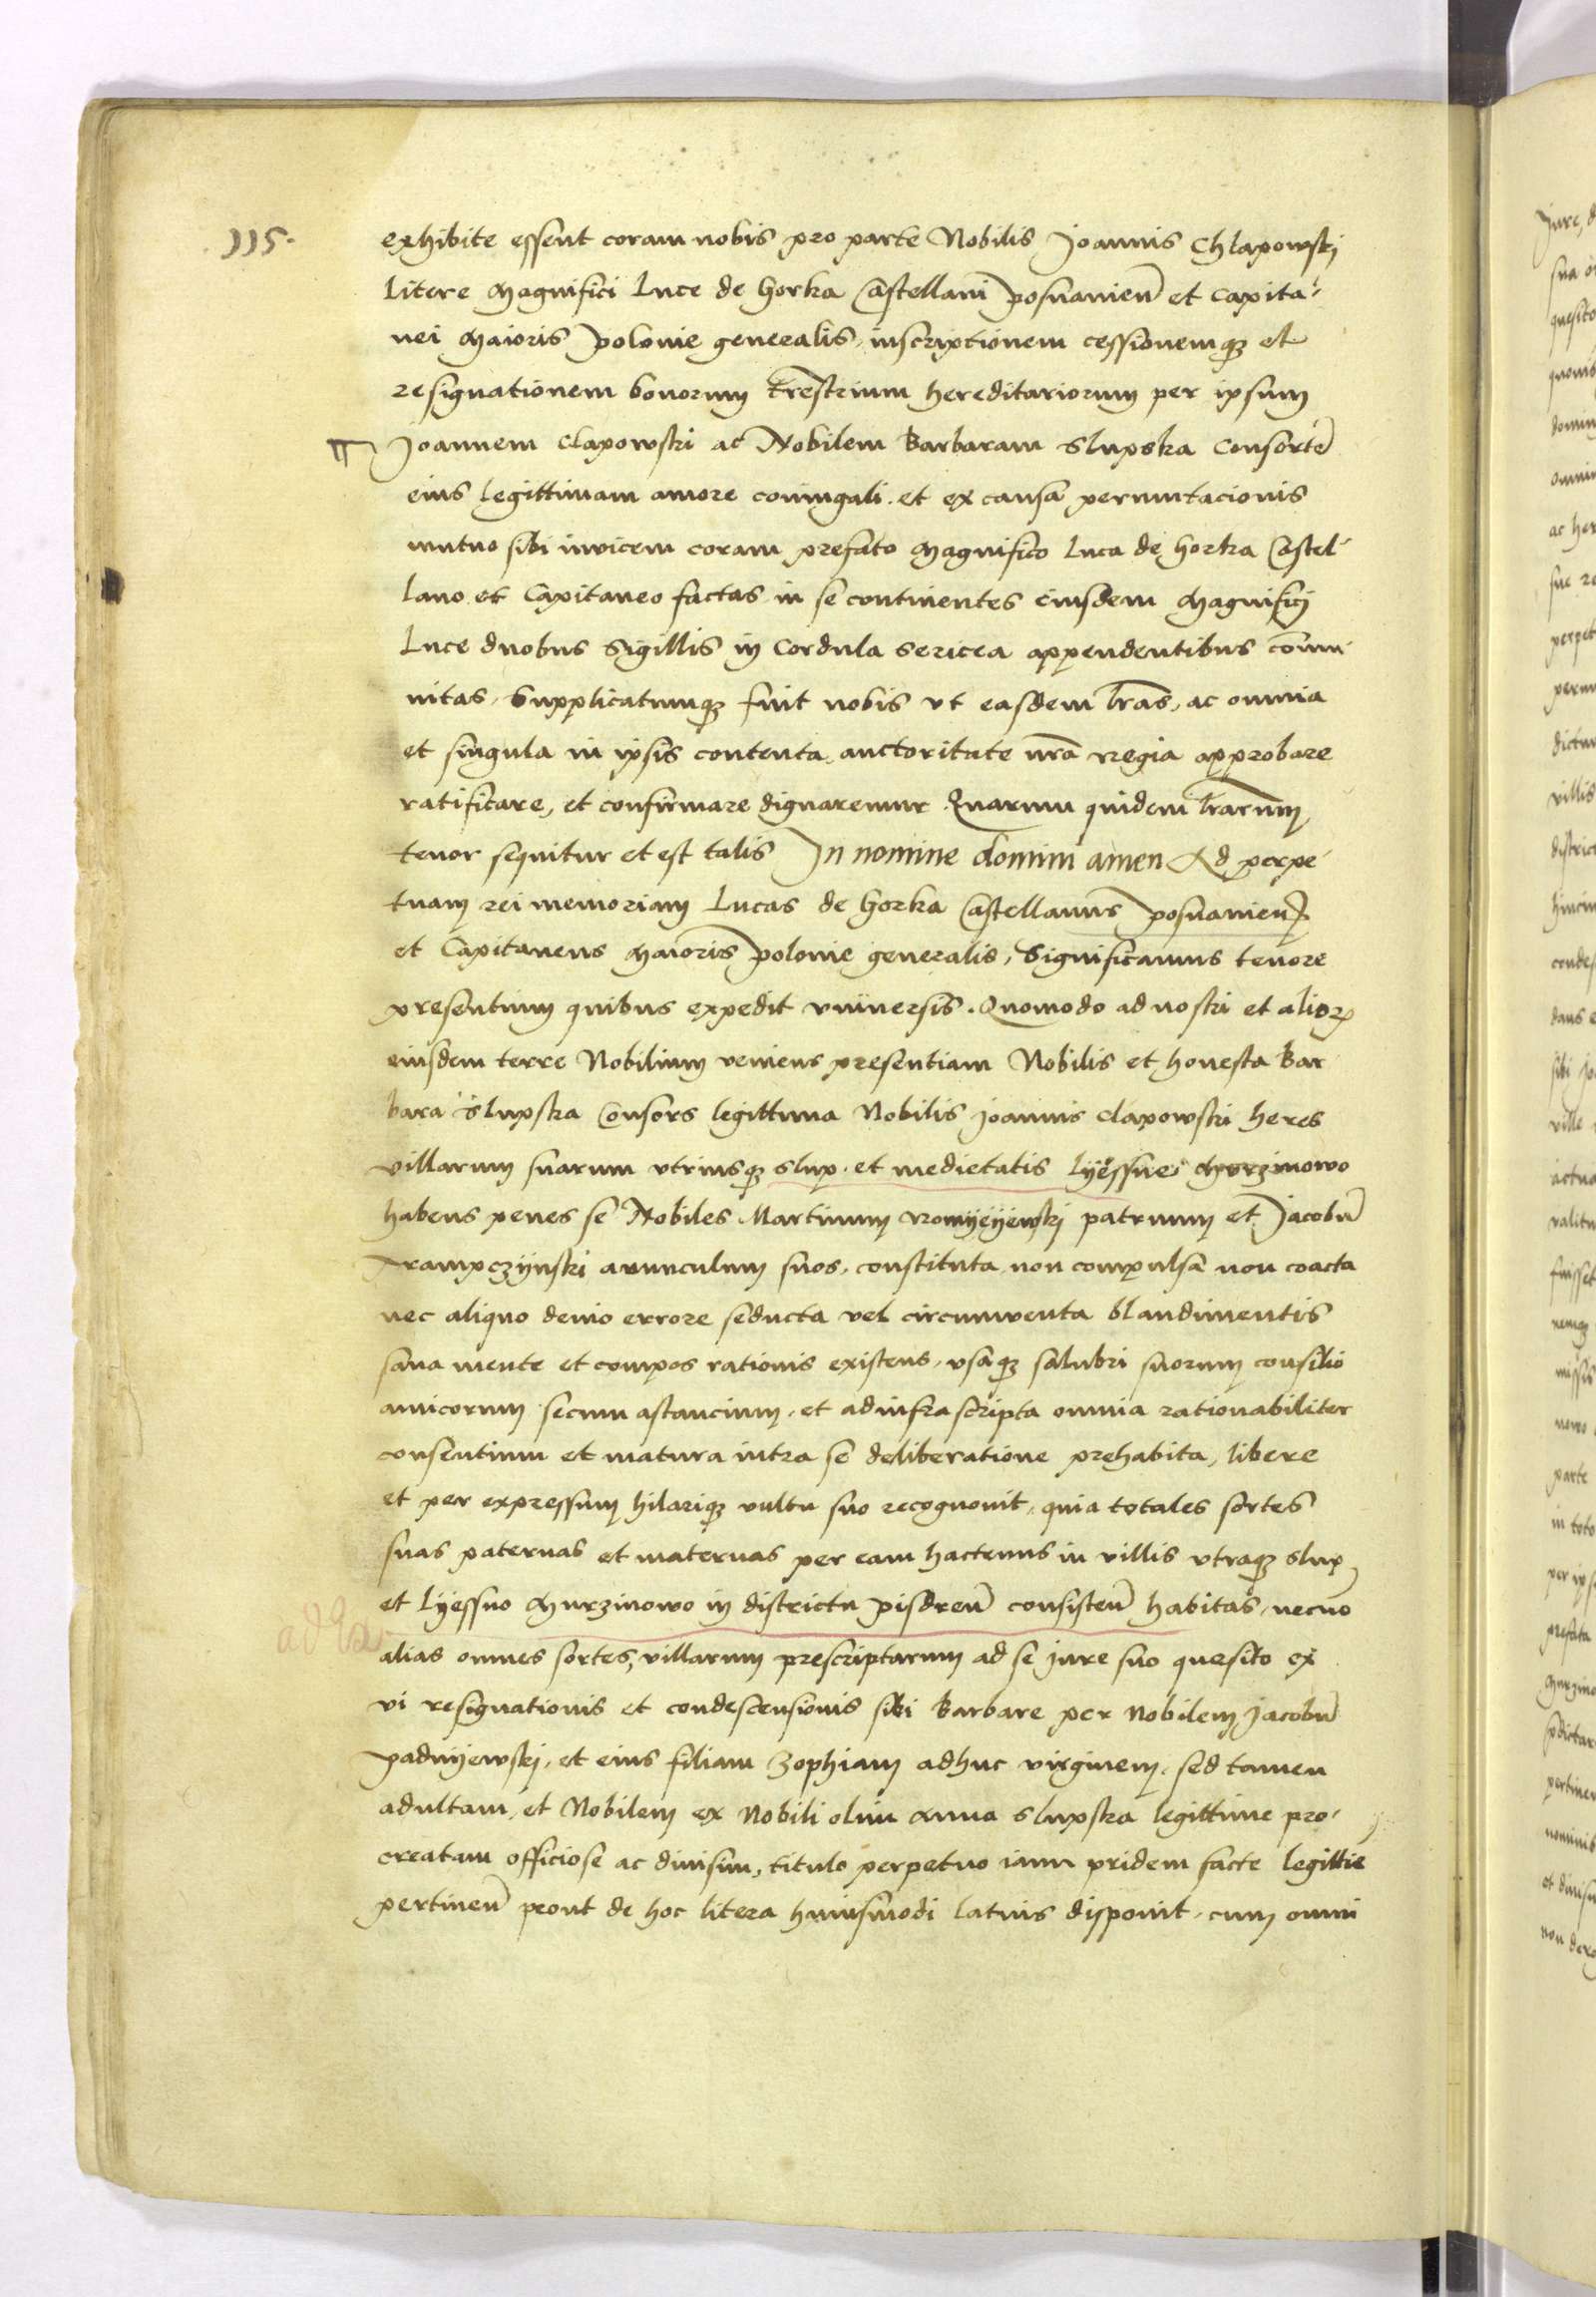 115.
exhibite essent coram nobis pro parte Nobilis Joannis Chlapowski
Litere Magnifici Luce de Gorka Castellani posnanien̄ et Capita-
nei Maioris Polonie generalis, inscriptionem cessionemqꝫ et
resignationem bonorum trēstrium hereditariorum per ipsum
Joannem Clapowski ac Nobilem Barbaram Slupska Consortē
eius legittimam amore coniugali et ex causa permutacionis
mutuo sibi invicem coram prefato Magnifico Luca de Gorka Castel-
lano et Capitaneo factas in se continentes eiusdem Magnifici
Luce duobus Sigillis in Cordula sericea appendentibus cōmu-
nitas, Supplicatumqꝫ fuit nobis vt easdem lr̄as, ac omnia
et singula in ipsis contenta auctoritate nr̄a regia approbare
ratificare, et confirmare dignaremur. Quarum quidem lr̄arum
tenor sequitur et est talis In nomine domini amen Ad perpe-
tuam rei memoriam Lucas de Gorka Castellanus posnanien̄
et Capitaneus Maioris polonie generalis, Significamus tenore
presentium quibus expedit vniuersis. Quomodo ad nostri et alioꝝ
eiusdem terre Nobilium veniens presentiam Nobilis et honesta Bar
bara Slupska Consors legittima Nobilis Joannis Clapowski heres
villarum suarum vtriusqꝫ slup et medietatis Lyessnei Murzinowo
habens penes se Nobiles Martinum patruum et Jacobū
avunculum suos, constituta non compulsa non coacta
nec aliquo devio errore seducta vel circumventa blandimentis
sana mente et compos rationis existens, vsaqꝫ salubri suorum consilio
amicorum secum astancium, et ad infra scripta omnia rationabiliter
consentium et matura intra se deliberatione prehabita, libere
et per expressum hilariqꝫ vultu suo recognovit, quia totales sortes
suas paternas et maternas per eam hactenus in villis vtraqꝫ slup
et Lyessno Murzinowo in districtu pisdren̄ consisten̄ habitas, necno
alias omnes sortes, villarum prescriptarum ad se jure suo quesito ex
vi resignationis et condescensionis sibi Barbare per Nobilem Jacobū
padnyewski, et eius filiam Zophiam adhuc virginem, sed tamen
adultam, et Nobilem ex Nobili olim Anna slupska legittime pro-
creatam officiose ac divisim, titulo perpetuo iam pridem facte legittie
pertinen̄ prout de hoc litera huiusmodi latius disponit, cum omni